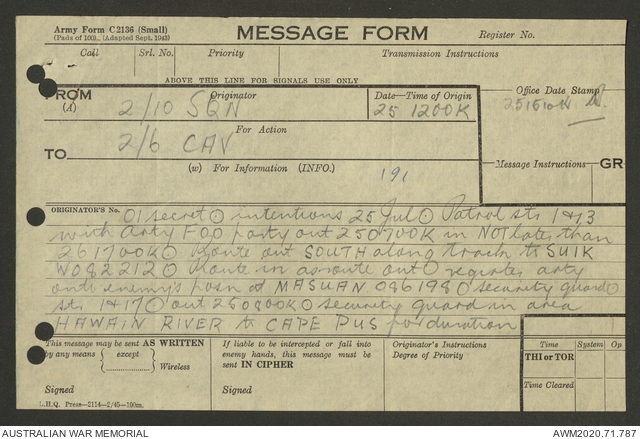 Army Form C2136 (Small)
(Pads of 100). (Adapted Sept. 1943)
MESSAGE FORM
Register No.
Call Srl. No. Priority Transmission Instructions
ABOVE THIS LINE FOR SIGNALS USE ONLY
FROM Originator Date—Time of Origin Office Date Stamp
(A) 2/10 SQN 25 1200K
For Action
TO 2/6 CAV
(w) For Information (INFO.) Message Instructions GR
191
ORIGINATOR'S No.
01 secret ⊙ intentions 25 Jul ⊙ Patrol strs 1 & 13
with arty FOO party out 250700K in NOT later than
261700K ⊙ Route out SOUTH along track to SUIK
W082212 ⊙ Route in as route out ⊙ register arty
onto enemy's posn at MASUAN 086198 ⊙ security guard
strs 1 & 17 ⊙ out 250800K ⊙ security guard in area
HAWAIN RIVER to CAPE PUS for duration
This message may be sent AS WRITTEN
by any means ( except ) Wireless
Signed
If liable to be intercepted or fall into
enemy hands, this message must be
sent IN CIPHER
Signed
Originator's Instructions
Degree of Priority
Time System Op
THI or TOR
Time Cleared
L.H.Q. Press—2114—2/45—100m.
AUSTRALIAN WAR MEMORIAL AWM2020.71.787